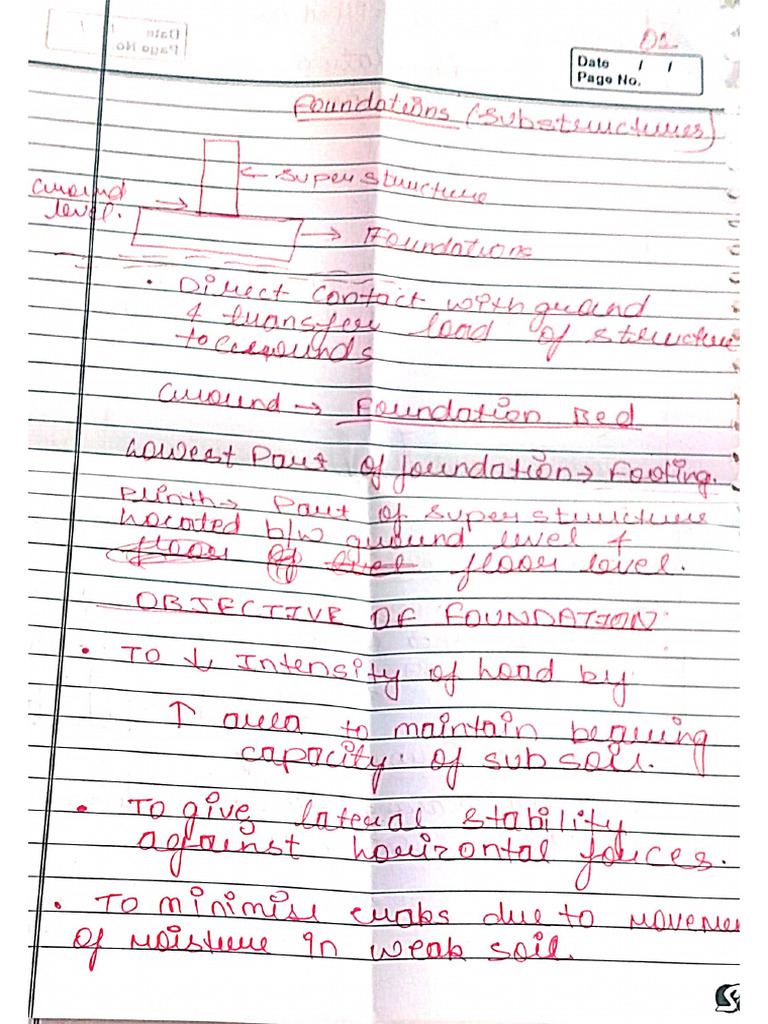 01
Date / /
Page No.
Foundations (Substructures)
← Superstructure
Ground level. →
→ Foundations
• Direct contact with ground
& transfer load of structure
to grounds
Ground → Foundation Bed
Lowest Part of foundation → Footing.
Plinth → Part of superstructure
Located b/w ground level &
floor level.
OBJECTIVE OF FOUNDATION:
• To ↓ Intensity of Load by
↑ area to maintain bearing
capacity of sub soil.
• To give lateral stability
against horizontal forces.
• To minimise craks due to movemen
of moisture in weak soil.